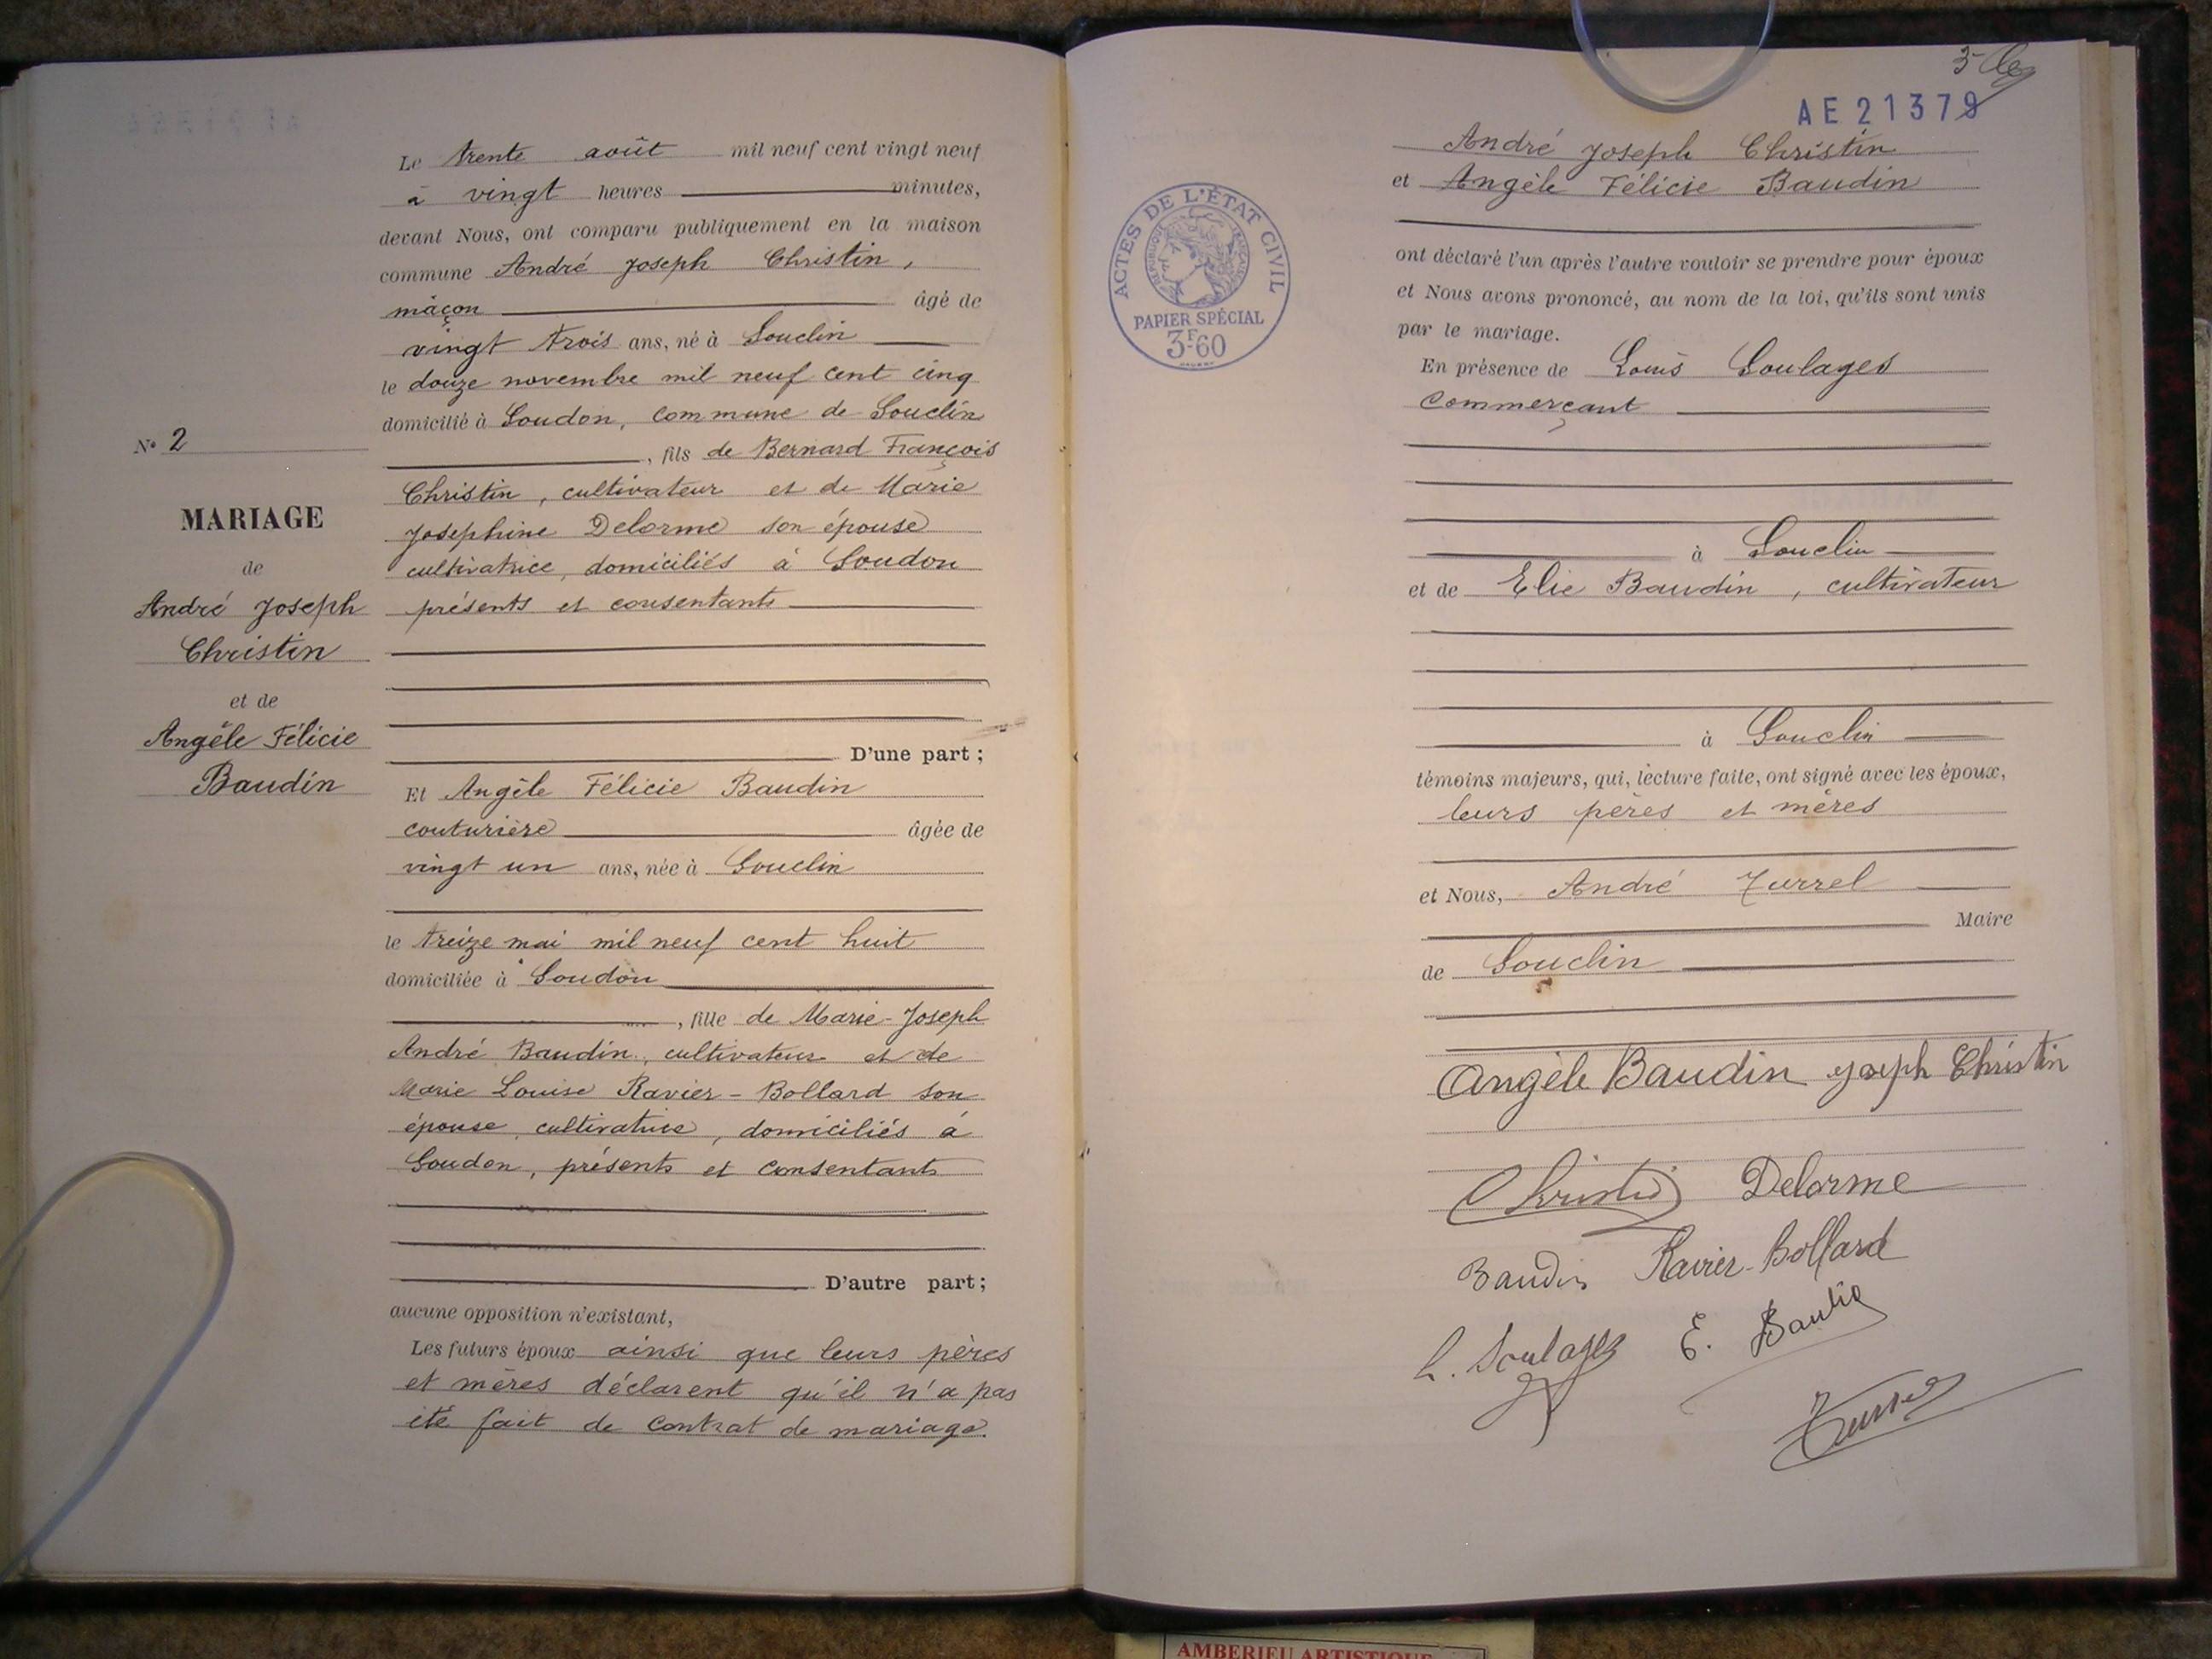 Le trente août mil neuf cent vingt neuf
à vingt heures minutes,
devant Nous, ont comparu publiquement en la maison
commune André Joseph Christin,
mâçon âgé de
vingt trois ans, né à Souclin
le douze novembre mil neuf cent cinq
domicilié à Soudon, commune de Souclin
, fils de Bernard François
Christin, cultivateur et de Marie
Josephine Delorme son épouse
cultivatrice, domiciliés à Soudon
présents et consentants
D'une part;
Et Angèle Félicie Baudin
couturière âgée de
vingt un ans, née à Souclin
le treize mai mil neuf cent huit
domiciliée à Soudon
, fille de Marie-Joseph
André Baudin, cultivateur et de
Marie Louise Ravier-Bollard son
épouse, cultivatrice, domiciliés à
Soudon, présents et consentants
D'autre part;
aucune opposition n'existant,
Les futurs époux ainsi que leurs pères
et mères déclarent qu'il n'a pas
été fait de contrat de mariage.
No 2
MARIAGE
de
André Joseph
Christin
et de
Angèle Félicie
Baudin
AE21379
ACTES DE L'ÉTAT CIVIL
RÉPUBLIQUE FRANÇAISE
PAPIER SPÉCIAL
3F60
André Joseph Christin
et Angèle Félicie Baudin
ont déclaré l'un après l'autre vouloir se prendre pour époux
et Nous avons prononcé, au nom de la loi, qu'ils sont unis
par le mariage.
En présence de Louis Soulages
commerçant
à Souclin
et de Elie Baudin, cultivateur
à Souclin
témoins majeurs, qui, lecture faite, ont signé avec les époux,
leurs pères et mères
et Nous, André Turrel
Maire
de Souclin
Angèle Baudin Joseph Christin
Christin Delorme
Baudin Ravier-Bollard
L. Soulages E. Baudin
Turrel
AMBERIEU ARTISTIQUE